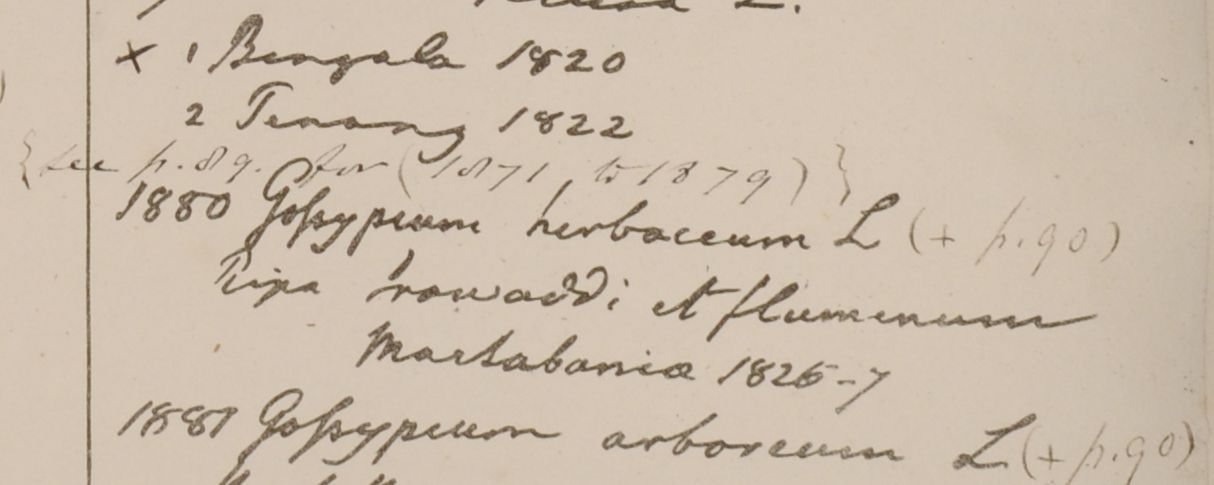 L.
× 1 Bengala 1820
2 Penang 1822
{see p. 89. for (1871 to 1879)}
1880 Gossypium herbaceum L (+ p. 90)
Ripa Irawaddi et fluminum
Martabaniæ 1826-7
1881 Gossypium arboreum L (+ p. 90)